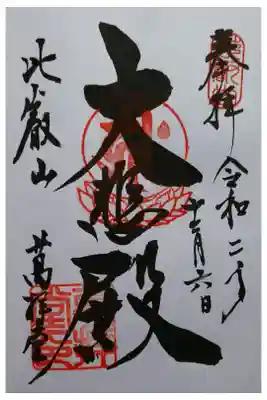 奉拝
令和二年
十二月六日
大悲殿
比叡山
萬拝堂